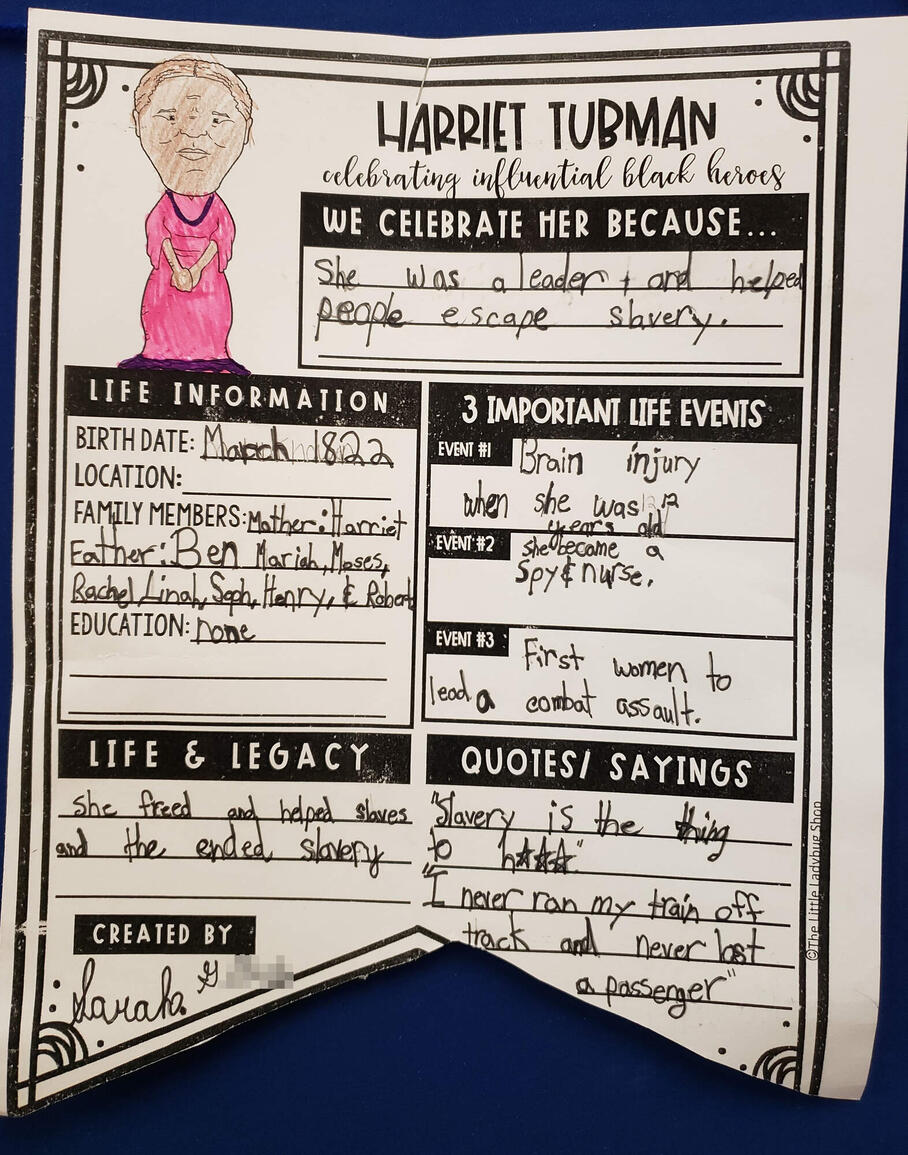 HARRIET TUBMAN
celebrating influential black heroes
WE CELEBRATE HER BECAUSE...
She was a leader + and helped
people escape slavery.
LIFE INFORMATION
BIRTH DATE: March 1822
LOCATION:
FAMILY MEMBERS: Mother: Harriet
Father: Ben Mariah, Moses,
Rachel, Linah, Soph, Henry, & Robert
EDUCATION: none
3 IMPORTANT LIFE EVENTS
EVENT #1 Brain injury
when she was 12
years old
EVENT #2 she become a
Spy & nurse.
EVENT #3 First women to
lead a combat assault.
LIFE & LEGACY
She freed and helped slaves
and the ended slavery
QUOTES/ SAYINGS
"Slavery is the thing
to h☆☆☆"
"I never ran my train off
track and never lost
a passenger"
CREATED BY
Sarah G
©The Little Ladybug Shop